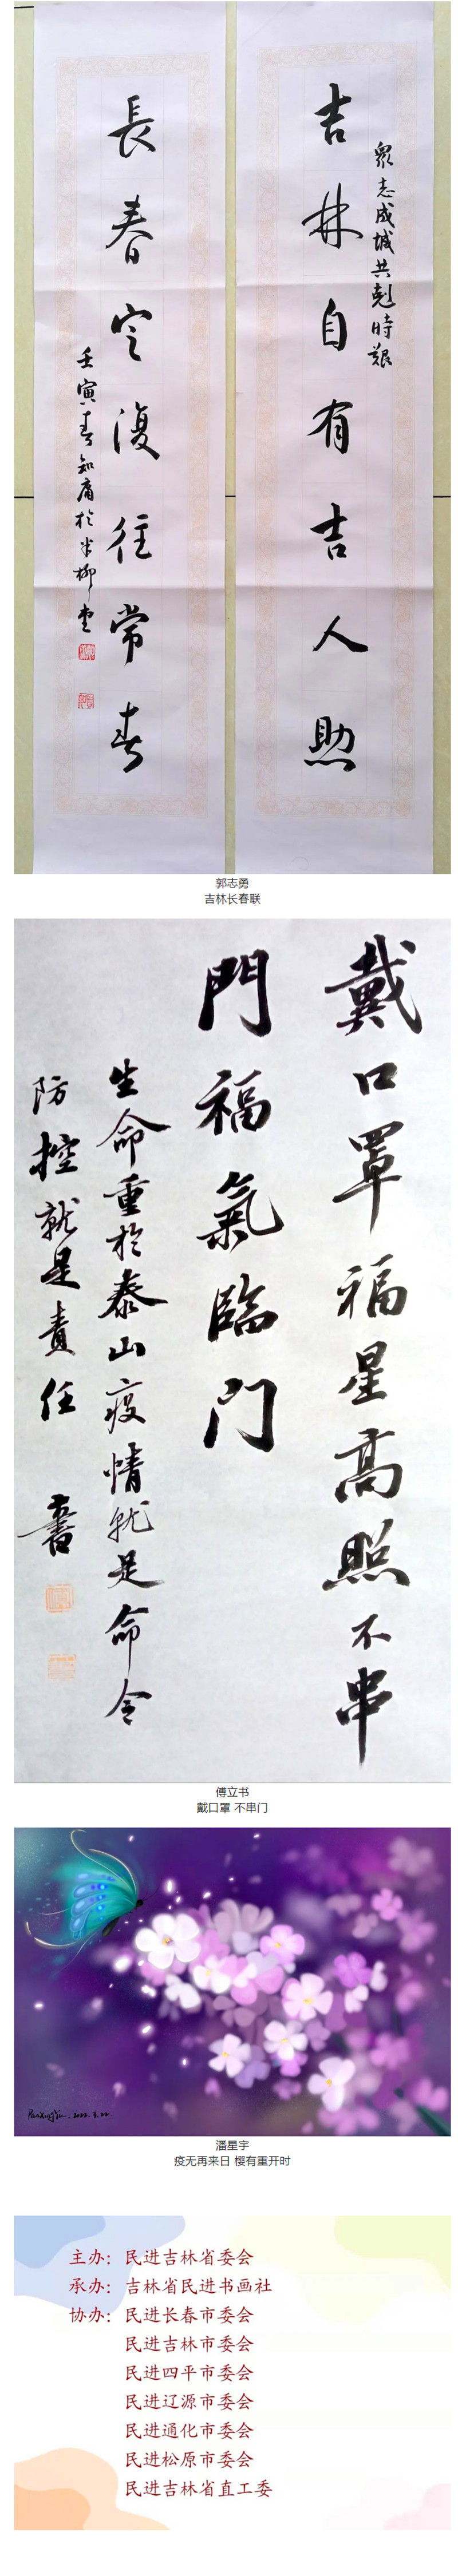 眾志成城共剋時艱
吉林自有吉人助
長春定復往常春
壬寅春知庸於半柳堂
郭志勇
吉林长春联
戴口罩福星高照不串
門福氣臨门
生命重於泰山疫情就是命令
防控就是責任 書
傅立书
戴口罩 不串门
PanXingYu.2022.3.22
潘星宇
疫无再来日 樱有重开时
主办：民进吉林省委会
承办：吉林省民进书画社
协办：民进长春市委会
民进吉林市委会
民进四平市委会
民进辽源市委会
民进通化市委会
民进松原市委会
民进吉林省直工委